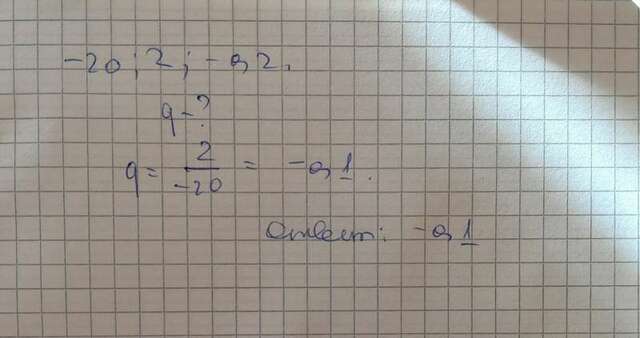 -20; 2; -0,2.
q - ?
q = 2/-20 = -0,1.
ответ: -0,1